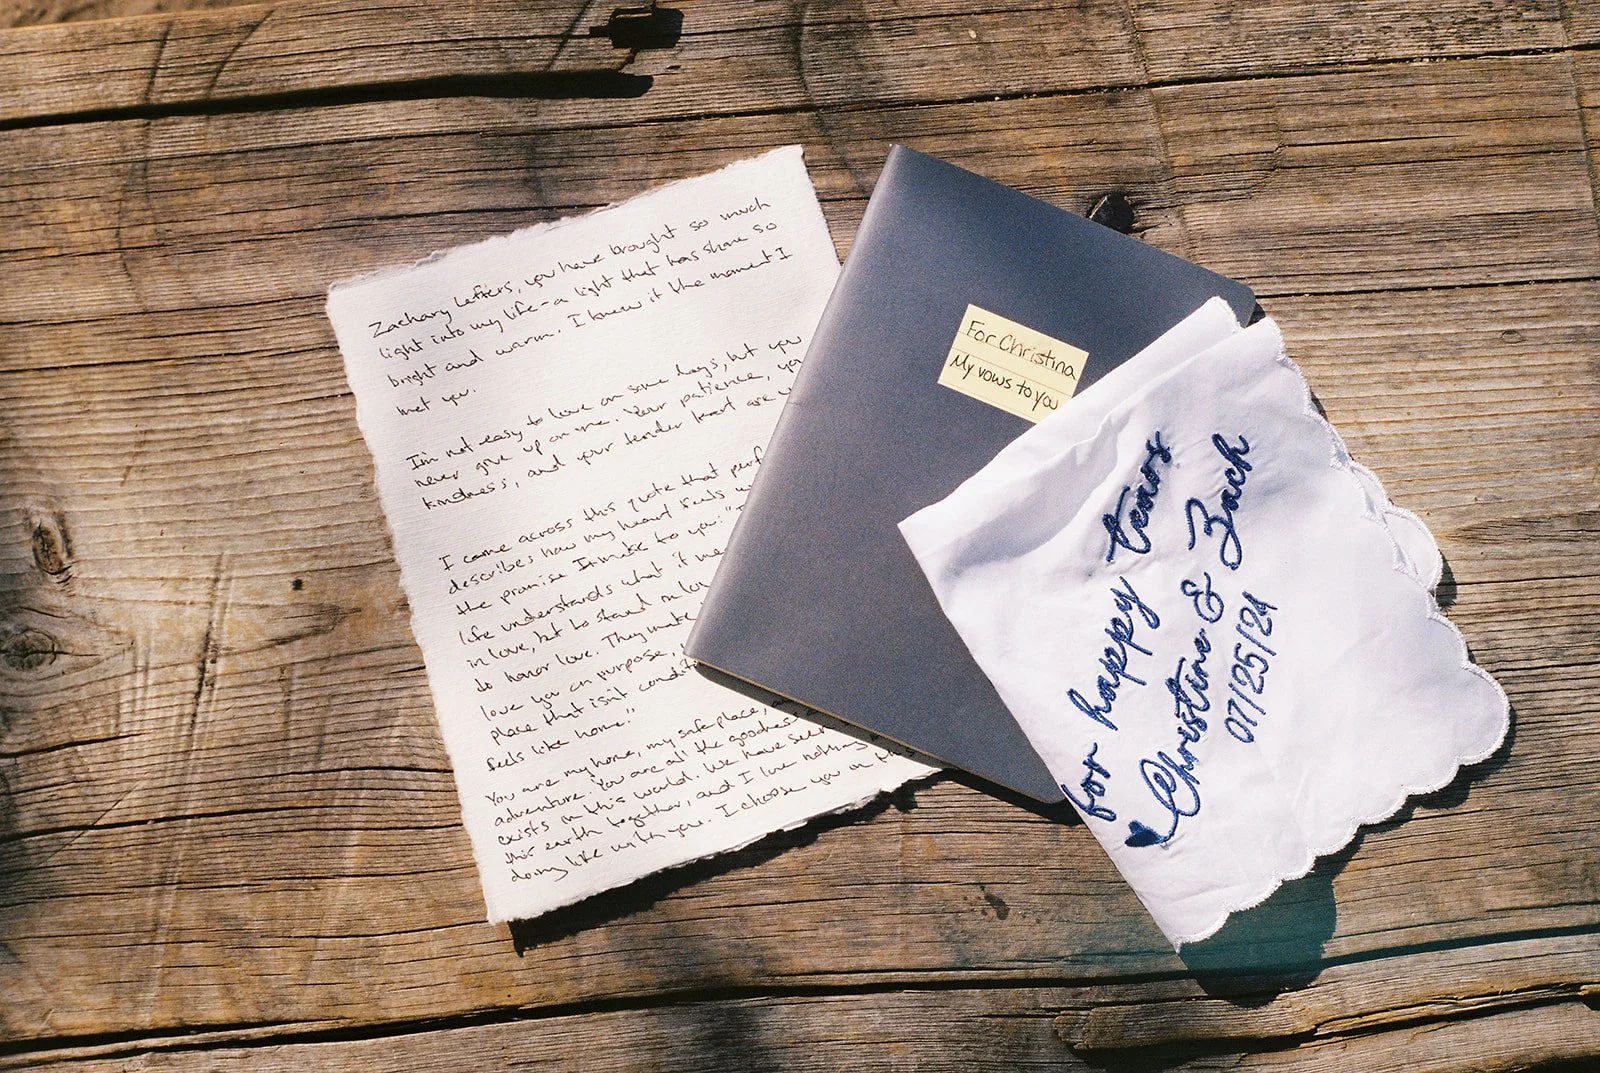 Zachary Letters, you have brought so much
light into my life - a light that has shone so
bright and warm. I knew it the moment I
met you.
I'm not easy to love on some days, but you
never give up on me. Your patience,
kindness, and your tender heart are
I came across this quote that
describes how my heart feels
the promise I make to you: "
life understands what it
in love, but to stand in
to honor love. They make
love you on purpose,
place that isn't
feels like home."
You are my home, my safe place,
adventure. You are all the goodness
exists in this world. We have
this earth together, and I love nothing
doing life with you. I choose you in this
For Christina
My vows to you
for happy tears
Christina & Zach
07/25/24